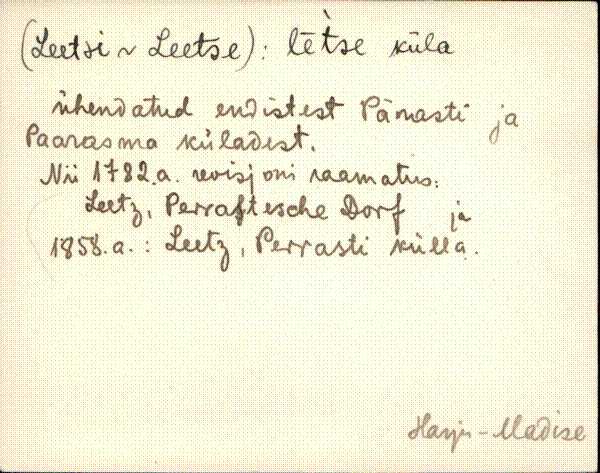 (Leetsi ~ Leetse): lētse küla
ühendatud endistest Pärasti ja
Paarasma küladest.
Nii 1782.a. revisjoni raamatus:
Leetz, Perraftesche Dorf ja
1858.a.: Leetz, Perrasti külla.
Harju-Madise